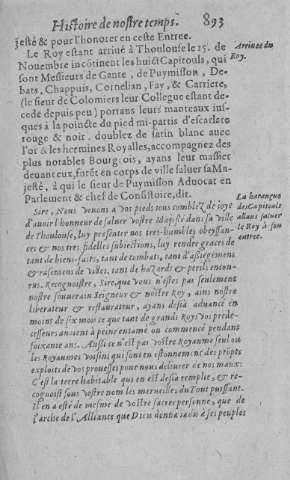 Histoire de nostre temps. 893
jesté & pour l'honorer en ceste Entree.
Le Roy estant arriué à Thoulouse le 25. de
Nouembre incõtinent les huict Capitouls, qui
sont Messieurs de Gante, de Puymisson, De-
bats, Chappuis, Cornelian, Fay, & Carriere,
(le sieur de Colomiers leur Collegue estant de-
cedé depuis peu) portans leurs manteaux jus-
ques à la poincte du pied mi-partis d'escarlate
rouge & noit, doublez de satin blanc auec
l'or & les hermines Royalles, accompagnez des
plus notables Bourgois, ayans leur massier
deuant eux, furēt en corps de ville saluer sa Ma-
jesté, à qui le sieur de Puymisson Aduocat en
Parlement & chef de Consistoire, dit.
Arriuee du
Roy.
La harangue
des Capitouls
allans saluer
le Roy à son
entree.
Sire, Nous venons à vos pieds tous comblez de joye
d'auoir l'honneur de saluer vostre Majesté dans sa ville
de Thoulouse, luy presenter nos tres-humbles obeyssan-
ces & nos tres fidelles subjections, luy rendre graces de
tant de bien-faits, tant de combats, tant d'assiegemens
& rasemens de villes, tant de hazards & perils encou-
rus. Recognoistre, Sire, que vous n'estes pas seulement
nostre souuerain Seigneur & nostre Roy, ains nostre
liberateur & restaurateur, ayans desià aduancé en
moins de six mois ce que tant de grands Roys vos prede-
cesseurs auoient à peine entamé ou commencé pendant
soixante ans. Aussi ce n'est pas vostre Royaume seul ou
les Royaumes voisins qui sont en estonnement des prõpts
exploits de vos proüesses pour nous deliurer de nos maux:
C'est la terre habitable qui en est desia remplie, & re-
cognoist sous vostre nom les merueilles du Tout puissant.
Il en a esté de mesme de vostre sacree personne, que de
l'arche de l'Alliance que Dieu donna jadis à ses peuples